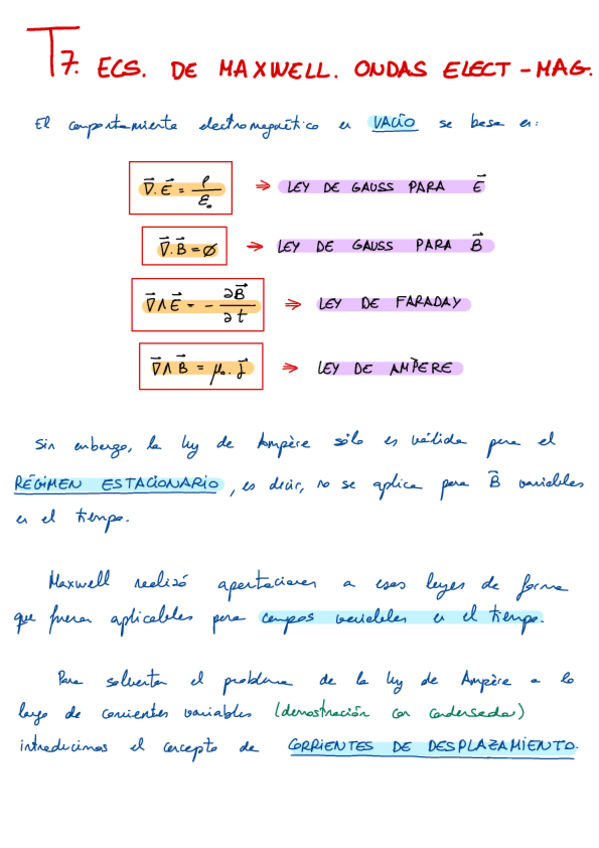 T7. ECS. DE MAXWELL. ONDAS ELECT-MAG.
El comportamiento electromagnético en VACÍO se basa en:
∇⃗·E⃗ = ρ/ε₀ ⇒ LEY DE GAUSS PARA E⃗
∇⃗·B⃗ = ∅ → LEY DE GAUSS PARA B⃗
∇⃗∧E⃗ = - ∂B⃗/∂t ⇒ LEY DE FARADAY
∇⃗∧B⃗ = μ₀·j⃗ ⇒ LEY DE AMPÈRE
Sin embargo, la ley de Ampère sólo es válida para el
RÉGIMEN ESTACIONARIO, es decir, no se aplica para B⃗ variables
en el tiempo.
Maxwell realizó aportaciones a esas leyes de forma
que fueran aplicables para campos variables en el tiempo.
Para solventar el problema de la ley de Ampère a lo
largo de corrientes variables (demostración con condensador)
introducimos el concepto de CORRIENTES DE DESPLAZAMIENTO.